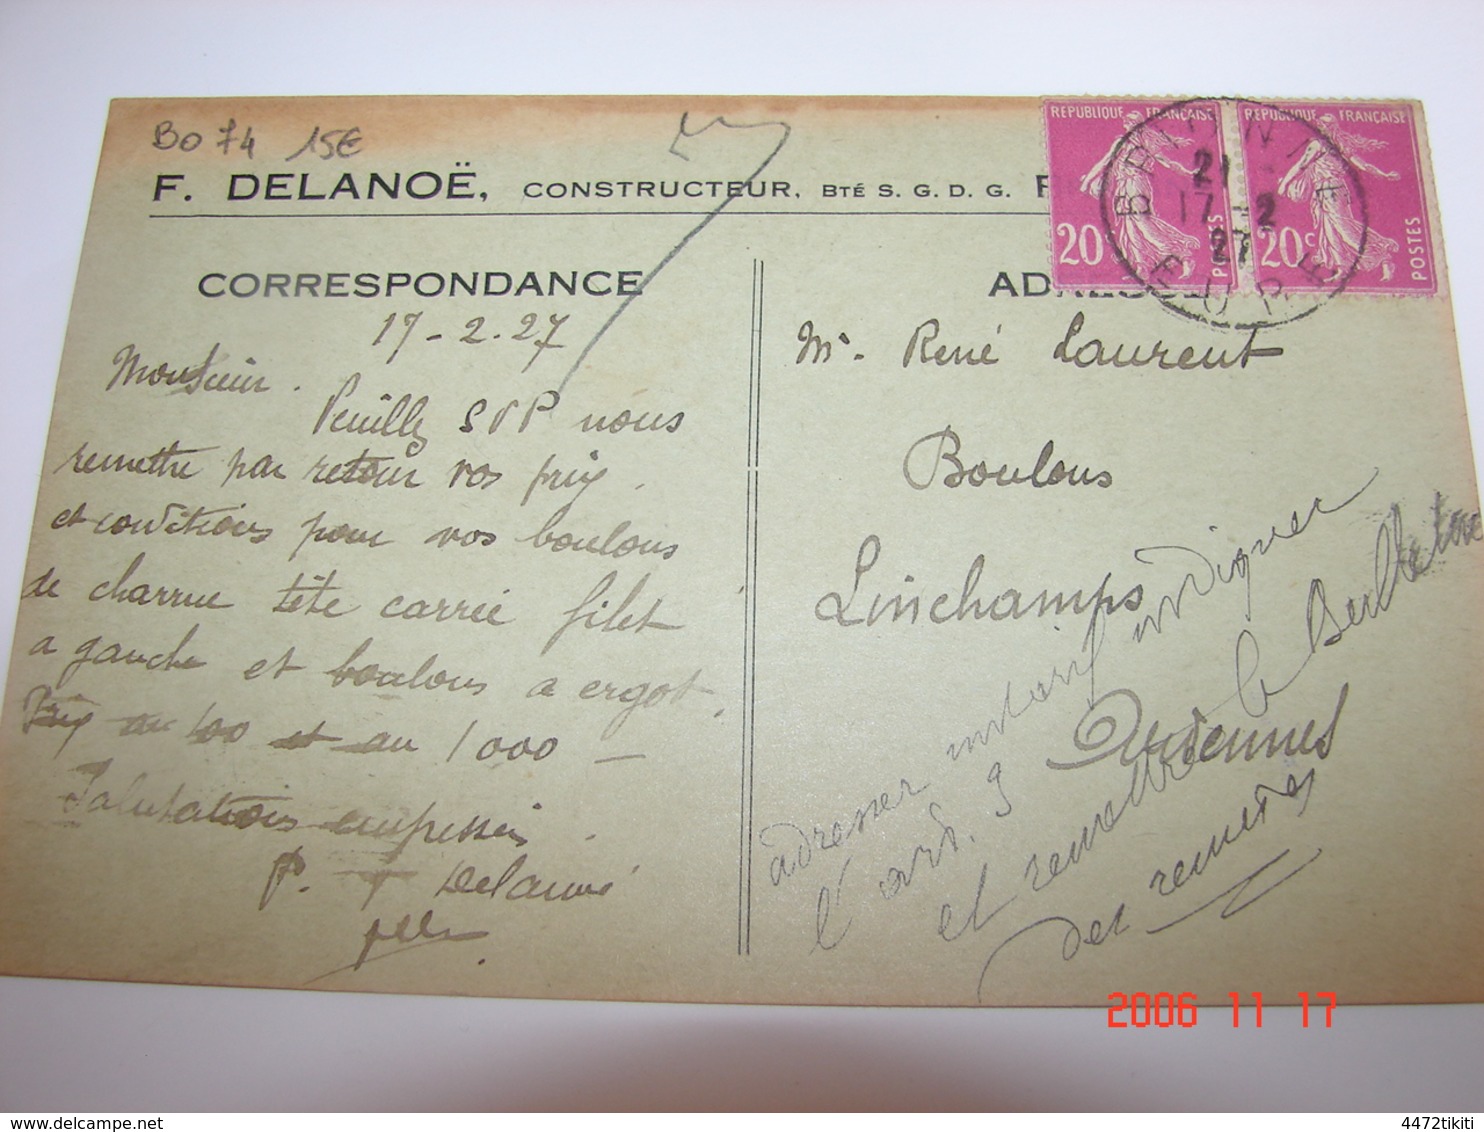 BO 74 15€
F. DELANOË, CONSTRUCTEUR, BTÉ S. G. D. G.
REPUBLIQUE FRANÇAISE
20
POSTES
REPUBLIQUE FRANÇAISE
20c
POSTES
BRIONNE
21
17-2
27
EURE
CORRESPONDANCE
17-2.27
Monsieur.
Veuillez SVP nous
remettre par retour vos prix.
et conditions pour vos boulons
de charrue tête carrée filet
a gauche et boulons a ergot.
Prix au 100 et au 1000 —
Salutations empressées.
P. F Delanoë
Mr. René Laurent
Boulons
Linchamps
Ardennes
adresser notre tarif indiquer
l'art. 9
et remettre le Bulletin
des remises
2006 11 17
4472tikiti